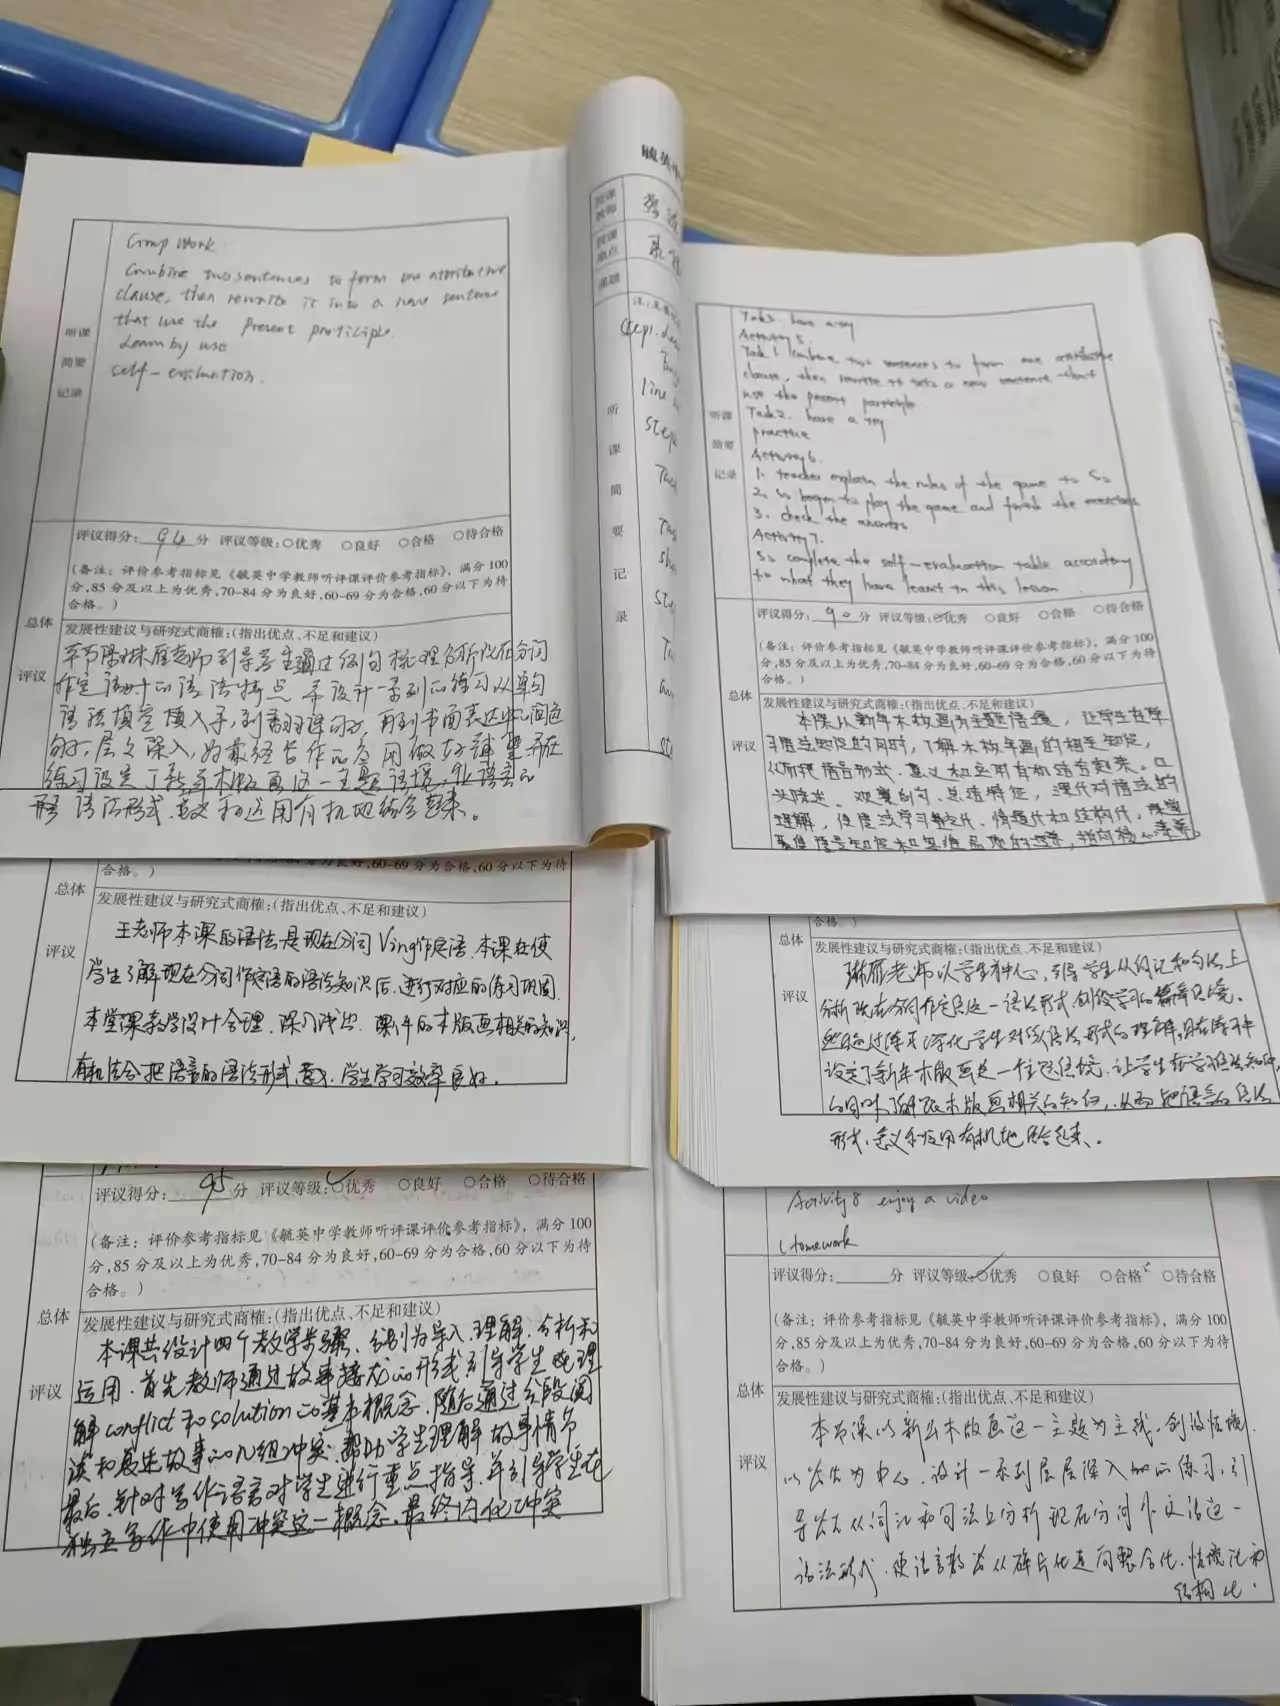 Group Work
Combine two sentences to form one attributive
clause, then rewrite it into a new sentence
that use the present participle.
Learn by use
self-evaluation.
听课
简要
记录
评议得分: 94 分 评议等级:○优秀 ○良好 ○合格 ○待合格
(备注: 评价参考指标见《毓英中学教师听评课评价参考指标》, 满分 100
分,85 分及以上为优秀,70-84 分为良好,60-69 分为合格,60 分以下为待
合格。)
总体
评议
发展性建议与研究式商榷:(指出优点、不足和建议)
本节课琳雁老师引导学生通过例句梳理分析现在分词
作定语时的语法特点,并设计一系列的练习从单句
语法填空填入手,到翻译句子,再到书面表达中润色
句子,层层深入,为最终合作品应用做好铺垫,并在
练习设定了新年木版画这一主题语境,把语言的
语法形式、意义和运用有机地结合起来。
毓英中
授课
教师
授课
地点
课题
听
课
简
要
记
录
Task2. have a try
Activity 5.
Task 1 Combine two sentences to form one attributive
clause, then rewrite it into a new sentence that
use the present participle
Task2. have a try
practice
Activity 6.
1. teacher explain the rules of the game to Ss
2. Ss began to play the game and finish the exercises
3. check the answers
Activity 7.
Ss complete the self-evaluation table according
to what they have learnt in this lesson.
听课
简要
记录
评议得分: 90 分 评议等级:○优秀 ○良好 ○合格 ○待合格
(备注: 评价参考指标见《毓英中学教师听评课评价参考指标》, 满分 100
分,85 分及以上为优秀,70-84 分为良好,60-69 分为合格,60 分以下为待
合格。)
总体
评议
发展性建议与研究式商榷:(指出优点、不足和建议)
本课从新年木板画为主题语境, 让学生在学
习语法知识的同时, 了解木板年画的相关知识,
从而把语言形式、意义和运用有机结合起来。
观察例句、总结特征, 深化对语法的
理解, 使语法学习整体化、情境化和结构化。课堂
合格。)
总体
评议
发展性建议与研究式商榷:(指出优点、不足和建议)
王老师本课的语法是现在分词 Ving作定语.本课在使
学生了解现在分词作定语的语法知识后,进行对应的练习巩固.
本堂课教学设计合理,深入浅出,课件的木版画相关的知识,
有机结合把语言的语法形式、意义,学生学习效率良好。
合格。)
总体
评议
发展性建议与研究式商榷:(指出优点、不足和建议)
琳雁老师以学生为中心,引导学生从词汇和句法上
分析现在分词作定语这一语法形式,创设学习的语境,
然后通过练习深化学生对该语法形式的理解,且在练习中
设定了新年木版画这一主题语境,让学生在学习语法知识
的同时了解跟木版画相关的知识,从而把语言的语法
形式、意义和应用有机地结合起来、。
评议得分: 95 分 评议等级:○优秀 ○良好 ○合格 ○待合格
(备注: 评价参考指标见《毓英中学教师听评课评价参考指标》, 满分 100
分,85 分及以上为优秀,70-84 分为良好,60-69 分为合格,60 分以下为待
合格。)
总体
评议
发展性建议与研究式商榷:(指出优点、不足和建议)
本课共设计四个教学步骤,分别为导入、理解、分析和
运用.首先教师通过故事接龙的形式引导学生梳理
解 conflict 和 solution 的基本概念.随后通过分段阅
读和展述故事的几组冲突,帮助学生理解故事情节
最后,针对写作语言对学生进行重点指导,并引导学生在
独立写作中使用冲突这一概念,最终内化冲突
Activity 8 enjoy a video
Homework
评议得分:_____分 评议等级:○优秀 ○良好 ○合格 ○待合格
(备注: 评价参考指标见《毓英中学教师听评课评价参考指标》, 满分 100
分,85 分及以上为优秀,70-84 分为良好,60-69 分为合格,60 分以下为待
合格。)
总体
评议
发展性建议与研究式商榷:(指出优点、不足和建议)
本节课以新年木版画这一主题为主线,创设情境.
以学生为中心,设计一系列层层深入的练习,引
导学生从词汇和句法上分析现在分词作定语这一
语法形式,使语言教学从碎片化走向整合化,情境化和
结构化.